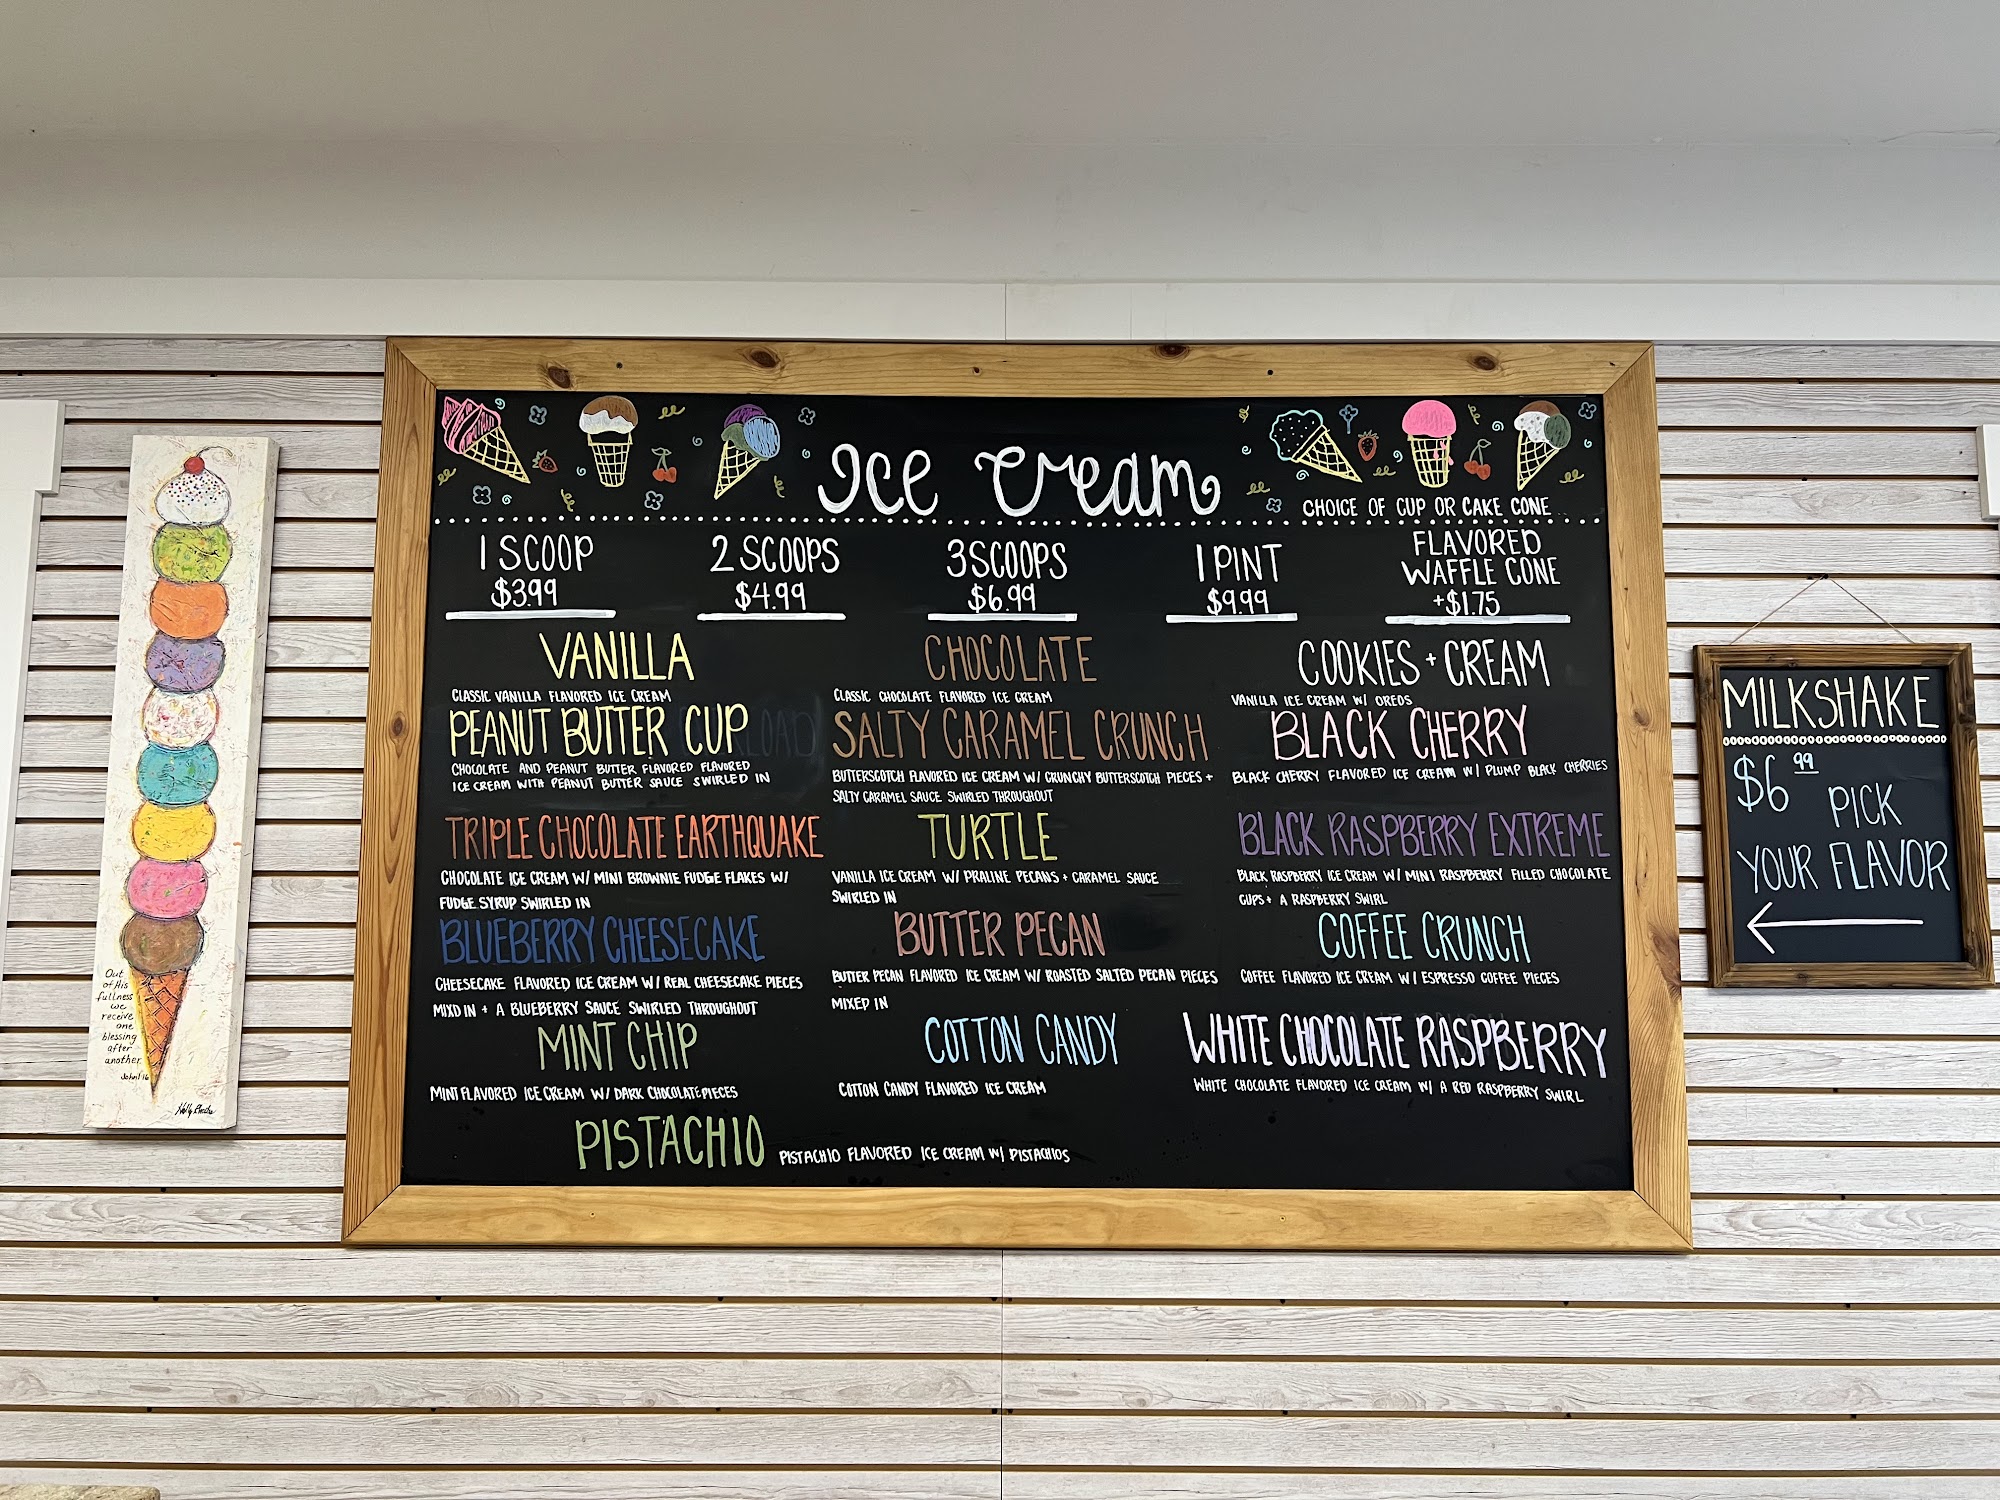 Ice Cream
CHOICE OF CUP OR CAKE CONE
1 SCOOP
$3.99
2 SCOOPS
$4.99
3 SCOOPS
$6.99
1 PINT
$9.99
FLAVORED
WAFFLE CONE
+$1.75
VANILLA
CLASSIC VANILLA FLAVORED ICE CREAM
CHOCOLATE
CLASSIC CHOCOLATE FLAVORED ICE CREAM
COOKIES + CREAM
VANILLA ICE CREAM W/ OREOS
PEANUT BUTTER CUP
CHOCOLATE AND PEANUT BUTTER FLAVORED FLAVORED
ICE CREAM WITH PEANUT BUTTER SAUCE SWIRLED IN
SALTY CARAMEL CRUNCH
BUTTERSCOTCH FLAVORED ICE CREAM W/ CRUNCHY BUTTERSCOTCH PIECES +
SALTY CARAMEL SAUCE SWIRLED THROUGHOUT
BLACK CHERRY
BLACK CHERRY FLAVORED ICE CREAM W/ PLUMP BLACK CHERRIES
TRIPLE CHOCOLATE EARTHQUAKE
CHOCOLATE ICE CREAM W/ MINI BROWNIE FUDGE FLAKES W/
FUDGE SYRUP SWIRLED IN
TURTLE
VANILLA ICE CREAM W/ PRALINE PECANS + CARAMEL SAUCE
SWIRLED IN
BLACK RASPBERRY EXTREME
BLACK RASPBERRY ICE CREAM W/ MINI RASPBERRY FILLED CHOCOLATE
CUPS + A RASPBERRY SWIRL
BLUEBERRY CHEESECAKE
CHEESECAKE FLAVORED ICE CREAM W/ REAL CHEESECAKE PIECES
MIXD IN + A BLUEBERRY SAUCE SWIRLED THROUGHOUT
BUTTER PECAN
BUTTER PECAN FLAVORED ICE CREAM W/ ROASTED SALTED PECAN PIECES
MIXED IN
COFFEE CRUNCH
COFFEE FLAVORED ICE CREAM W/ ESPRESSO COFFEE PIECES
MINT CHIP
MINT FLAVORED ICE CREAM W/ DARK CHOCOLATE PIECES
COTTON CANDY
COTTON CANDY FLAVORED ICE CREAM
WHITE CHOCOLATE RASPBERRY
WHITE CHOCOLATE FLAVORED ICE CREAM W/ A RED RASPBERRY SWIRL
PISTACHIO
PISTACHIO FLAVORED ICE CREAM W/ PISTACHIOS
MILKSHAKE
$6.99
PICK
YOUR FLAVOR
Out
of His
fullness
we
receive
one
blessing
after
another.
John 1:16